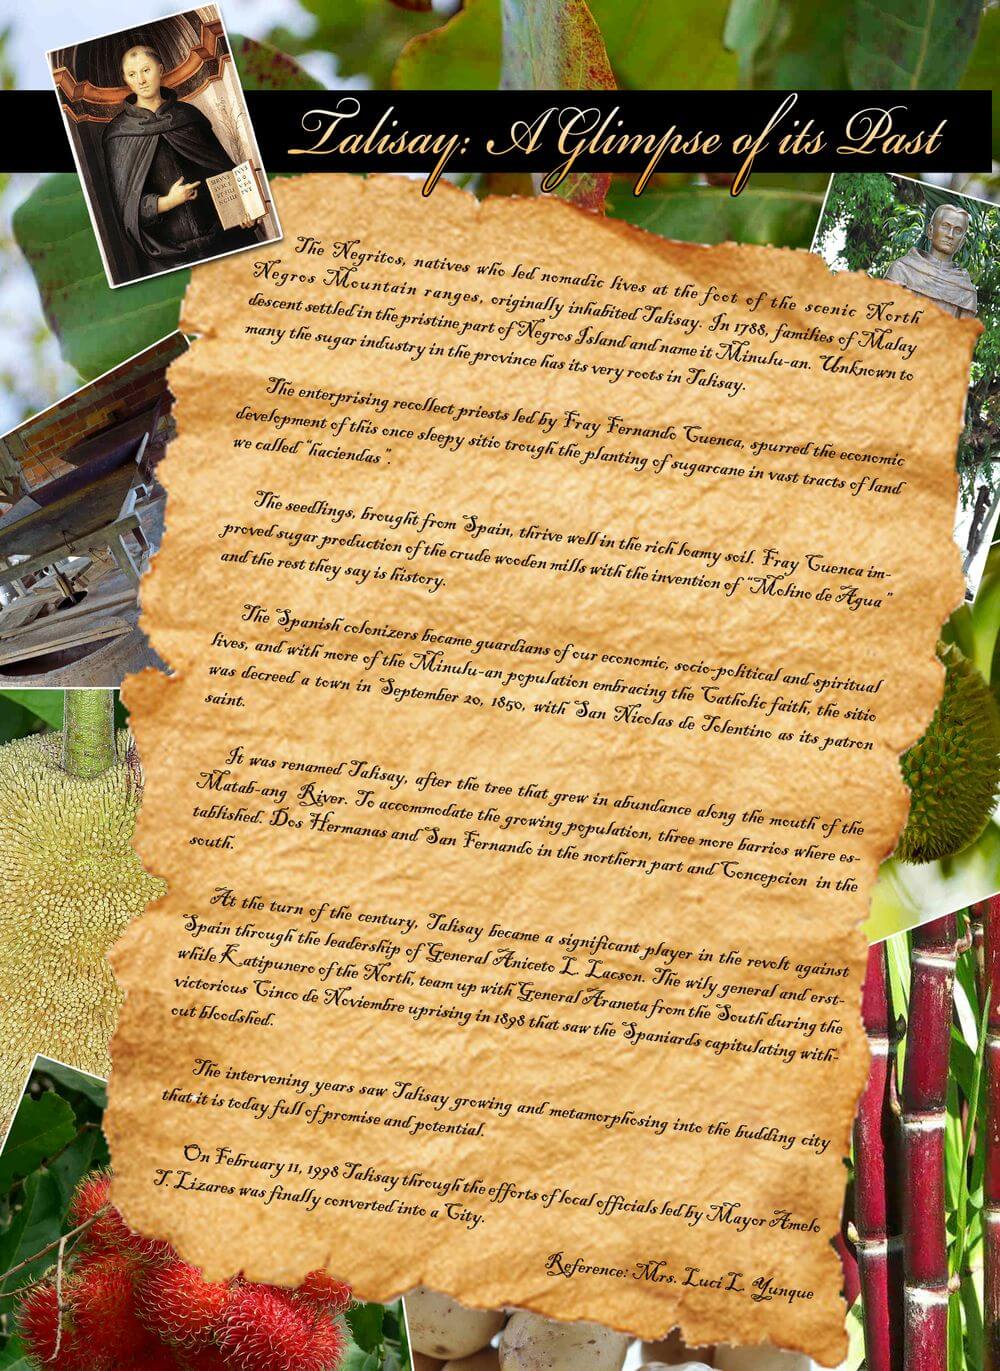 Talisay: A Glimpse of its Past
The Negritos, natives who led nomadic lives at the foot of the scenic North
Negros Mountain ranges, originally inhabited Talisay. In 1788, families of Malay
descent settled in the pristine part of Negros Island and name it Minulu-an. Unknown to
many the sugar industry in the province has its very roots in Talisay.
The enterprising recollect priests led by Fray Fernando Cuenca, spurred the economic
development of this once sleepy sitio trough the planting of sugarcane in vast tracts of land
we called "haciendas".
The seedlings, brought from Spain, thrive well in the rich loamy soil. Fray Cuenca im-
proved sugar production of the crude wooden mills with the invention of "Molino de Agua"
and the rest they say is history.
The Spanish colonizers became guardians of our economic, socio-political and spiritual
lives, and with more of the Minulu-an population embracing the Catholic faith, the sitio
was decreed a town in September 20, 1850, with San Nicolas de Tolentino as its patron
saint.
It was renamed Talisay, after the tree that grew in abundance along the mouth of the
Matab-ang River. To accommodate the growing population, three more barrios where es-
tablished. Dos Hermanas and San Fernando in the northern part and Concepcion in the
south.
At the turn of the century, Talisay became a significant player in the revolt against
Spain through the leadership of General Aniceto L. Lacson. The wily general and erst-
while Katipunero of the North, team up with General Araneta from the South during the
victorious Cinco de Noviembre uprising in 1898 that saw the Spaniards capitulating with-
out bloodshed.
The intervening years saw Talisay growing and metamorphosing into the budding city
that it is today full of promise and potential.
On February 11, 1998 Talisay through the efforts of local officials led by Mayor Amelo
J. Lizares was finally converted into a City.
Reference: Mrs. Luci L. Yunque